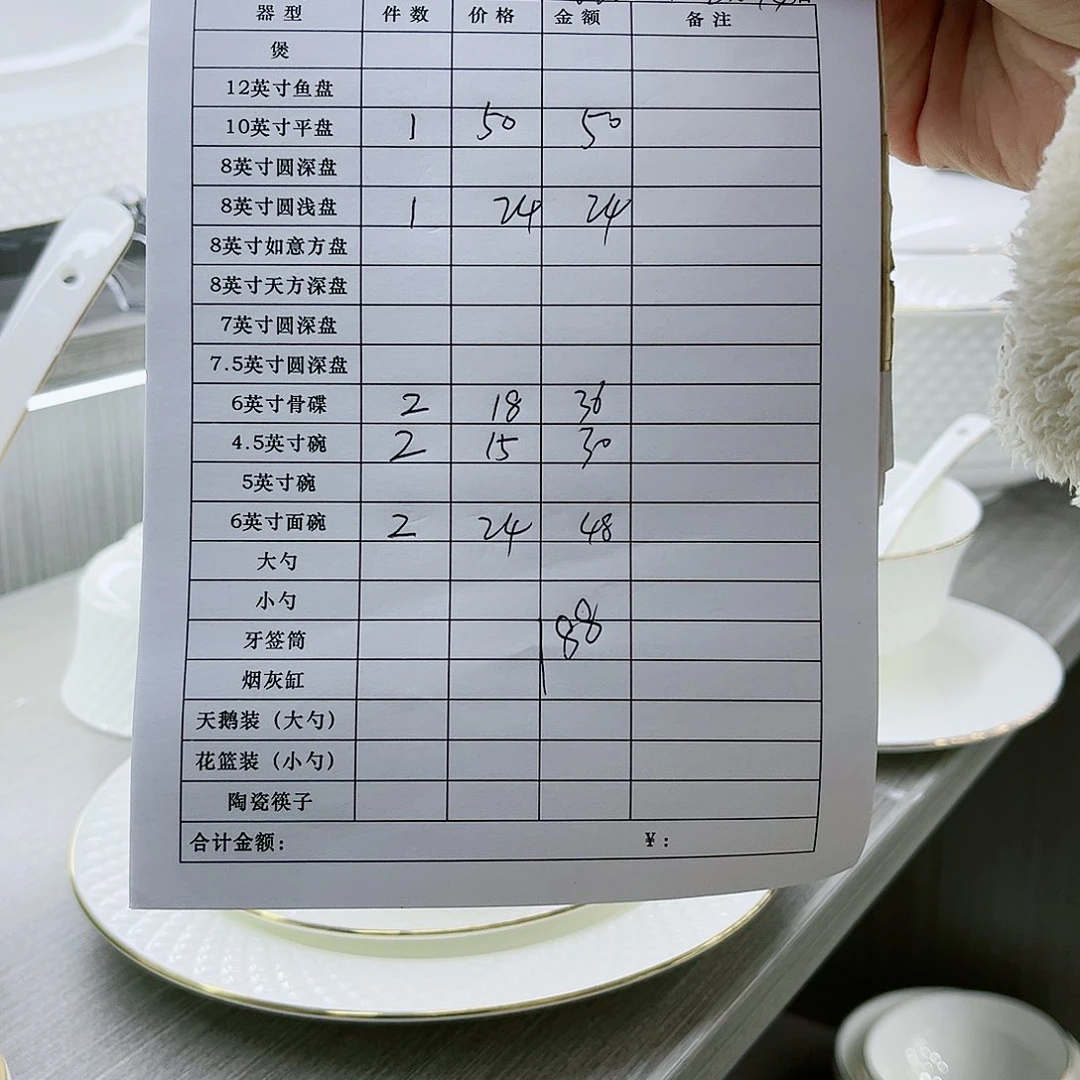 器型 件数 价格 金额 备注
煲
12英寸鱼盘
10英寸平盘 1 50 50
8英寸圆深盘
8英寸圆浅盘 1 24 24
8英寸如意方盘
8英寸天方深盘
7英寸圆深盘
7.5英寸圆深盘
6英寸骨碟 2 18 36
4.5英寸碗 2 15 30
5英寸碗
6英寸面碗 2 24 48
大勺
小勺
牙签筒 188
烟灰缸
天鹅装（大勺）
花篮装（小勺）
陶瓷筷子
合计金额： ￥：